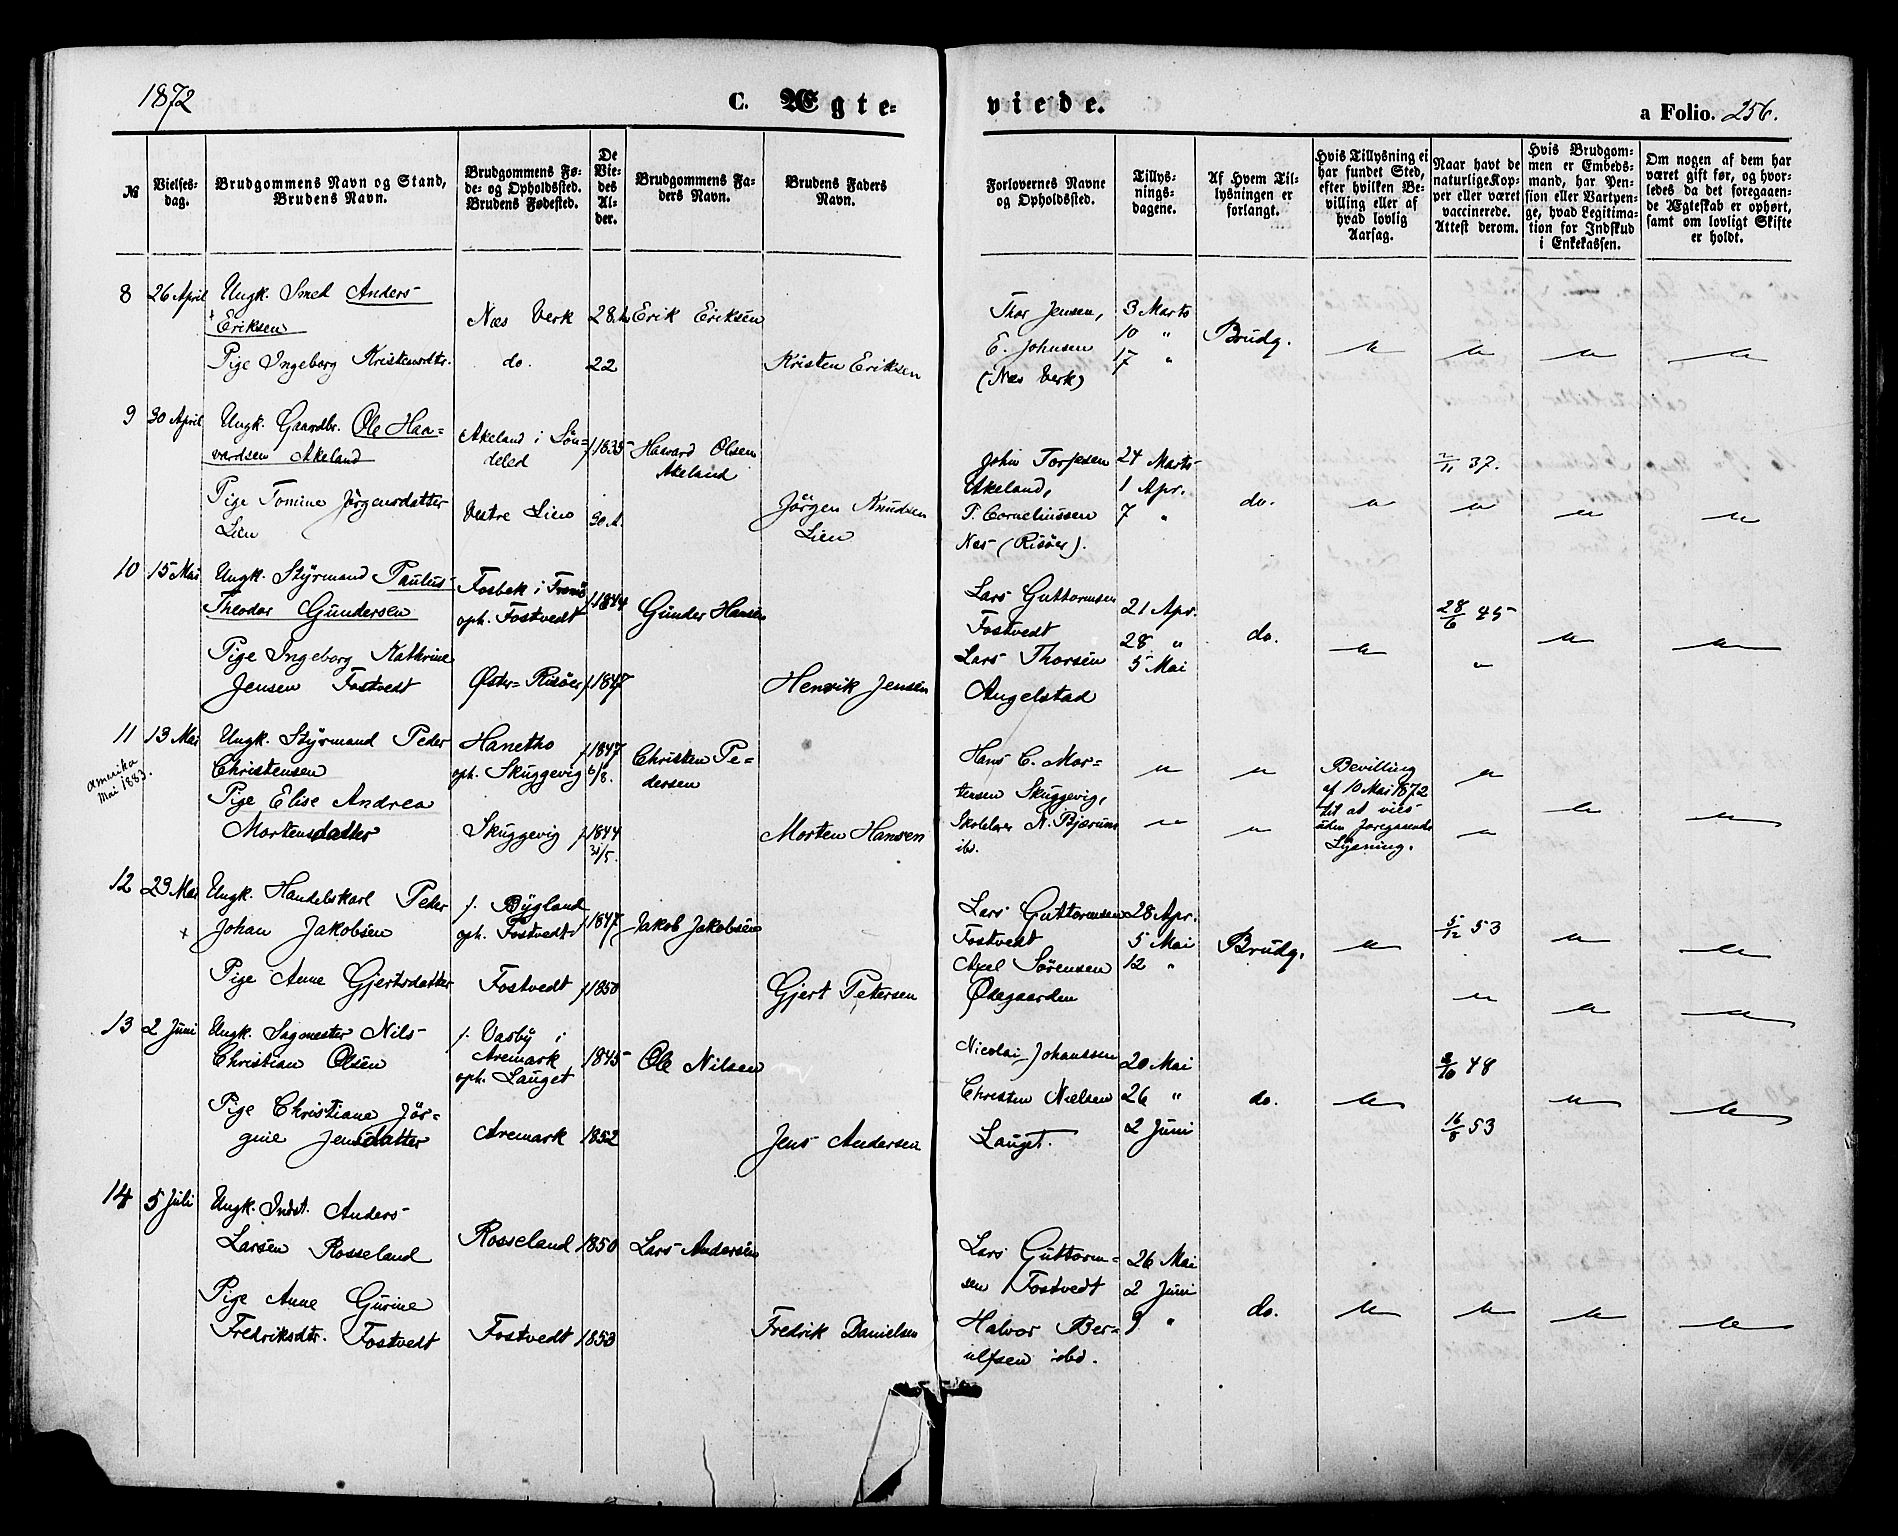 1872
C. Ægteviede.
a Folio. 256.
№
Vielsesdag.
Brudgommens Navn og Stand,
Brudens Navn.
Brudgommens Føde- og Opholdssted.
Brudens Fødested.
De Viedes Alder.
Brudgommens Faders Navn.
Brudens Faders Navn.
Forlovernes Navne og Opholdssted.
Tillysningsdagene.
Af Hvem Tillysningen er forlangt.
Hvis Tillysning ei har fundet Sted, efter hvilken Bevilling eller af hvad lovlig Aarsag.
Naar havt de naturlige Kopper eller været vaccinerede. Attest derom.
Hvis Brudgommen er Embedsmand, har Pension eller Vartpenge, hvad Legitimation for Indskud i Enkekassen.
Om nogen af dem har været gift før, og hvorledes da det foregaaende Ægteskab er ophørt, samt om lovligt Skifte er holdt.
8 26 April Ungk. Smed Anders
Eriksen Næs Verk 28 Erik Eriksen
Pige Ingeborg Kristensdtr. do. 22 Kristen Eriksen
Thor Jensen, 3 Marts
E. Johnsen 10 " Brudg.
(Næs Verk) 17 "
9 30 April Ungk. Gaardbr. Ole Haa-
vardsen Akeland Akeland i Søn-
deled f. 1835 Haavard Olsen
Akeland
Pige Tomine Jørgensdatter
Lien Vestre Lien 30 A. Jørgen Knudsen
Lien
John Torjesen 24 Marts
Akeland, 1 Apr. do. 37.
T. Corneliussen 7 "
Næs (Risøer).
10 15 Mai Ungk. Styrmand Paulus
Theodor Gundersen Fosbek i
oph. Fostvedt f. 1844 Gunder Hansen
Pige Ingeborg Kathrine
Jensen Fostvedt Øster-Risøer f. 1847 Henrik Jensen
Lars Guttormsen 21 Apr.
Fostvedt 28 " do. 28/6 45
Lars Thorsen 5 Mai "
Angelstad
11 13 Mai Ungk. Styrmand Peder
Christensen Hanetho
oph. Skuggevig f. 1847 6/8. Christen Pe-
dersen
Amerika
Mai 1883.
Pige Elise Andrea
Mortensdatter Skuggevig f. 1844 31/5. Morten Hansen
Hans C. Mor-
tensen Skuggevig,
Skolelærer N. Bjærum
ibd.
Bevilling
af 10 Mai 1872
til at vies
uden foregaaende
Lysning.
12 23 Mai Ungk. Handelskarl Peder
Johan Jakobsen f. Bygland
oph. Fostvedt f. 1847 Jakob Jakobsen
Pige Anne Gjertsdatter Fostvedt f. 1850 Gjert Petersen
Lars Guttormsen 28 Apr.
Fostvedt 5 Mai Brudg. 5/12 53
Axel Sörensen 12 "
Ødegaarden
13 2 Juni Ungk. Sagmester Nils
Christian Olsen f. Vasby i
Aremark
oph. Lauget 1845 Ole Nilsen
Pige Christiane Jör-
gine Jensdatter Aremark 1852 Jens Andersen
Nicolai Johanssen 20 Mai 48
Christen Nielsen 26 " do.
Lauget. 2 Juni 16/8 53
14 5 Juli Ungk. Indst. Anders
Larsen Rosseland Rosseland 1850 Lars Andersen
Pige Anne Gurine
Fredriksdtr. Fostvedt Fostvedt 1853 Fredrik Danielsen
Lars Guttorm- 26 Mai
sen Fostvedt 2 Juni do.
Halvor Ber- 9 "
ulfsen ibd.